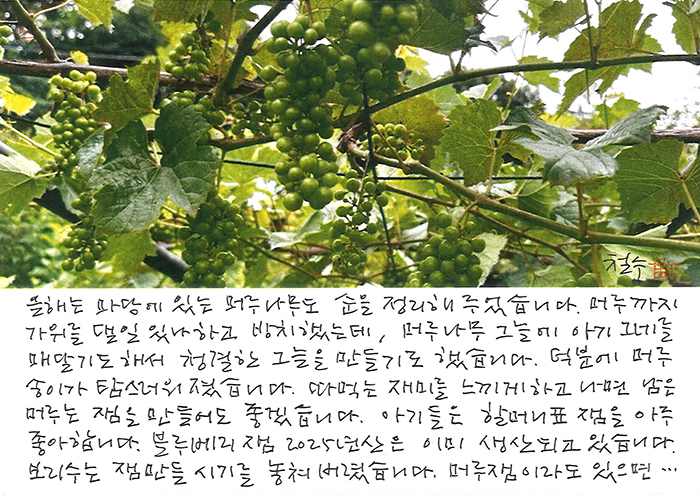 철수
올해는 마당에 있는 머루나무도 순을 정리해 주었습니다. 머루까지
가위를 댈일 있나하고 방치했는데, 머루나무 그늘에 아기 그네를
매달기도해서 청결한 그늘을 만들기로 했습니다. 덕분에 머루
송이가 탐스러워졌습니다. 따먹는 재미를 느끼게하고 나면 남은
머루는 잼을 만들어도 좋겠습니다. 아기들은 할머니표 잼을 아주
좋아합니다. 블루베리 잼 2025년산은 이미 생산되고 있습니다.
보리수는 잼만들 시기를 놓쳐 버렸습니다. 머루잼이라도 있으면 …